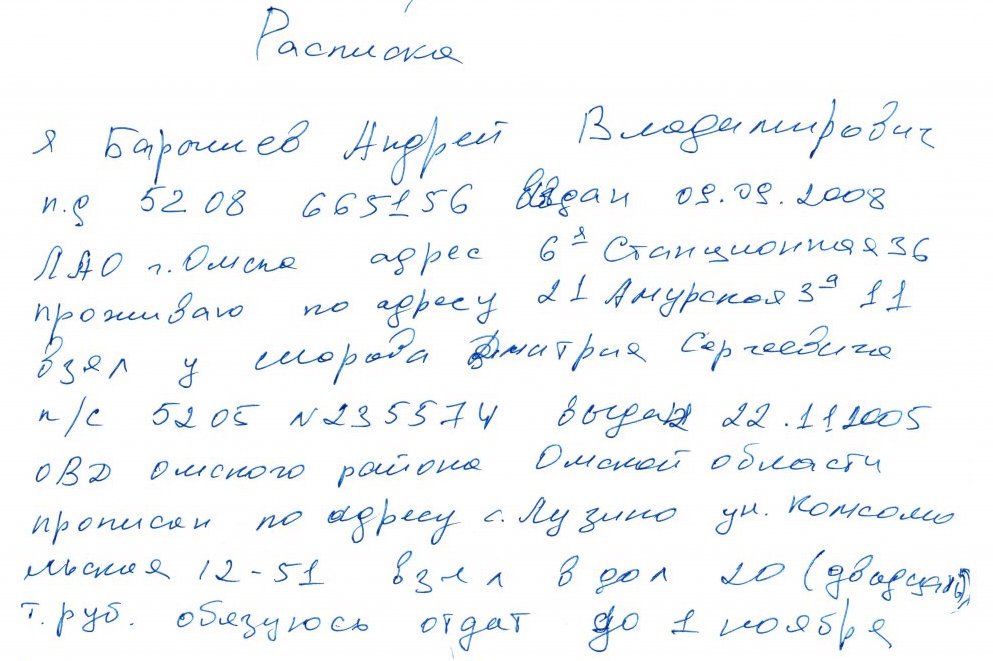 Расписка
я Барышев Андрей Владимирович
п.д 5208 665156 выдан 09.09.2008
ЛАО г. Омска адрес 6я Станционная 36
проживаю по адресу 21 Амурская 3а 11
взял у Дмитрия Сергеевича
п/с 5205 N235574 выдан 22.112005
ОВД Омского района Омской области
прописан по адресу с. Лузино ул. Комсомо
льская 12-51 взял в дол 20 (двадцать)
т. руб. обязуюсь отдат до 1 ноября